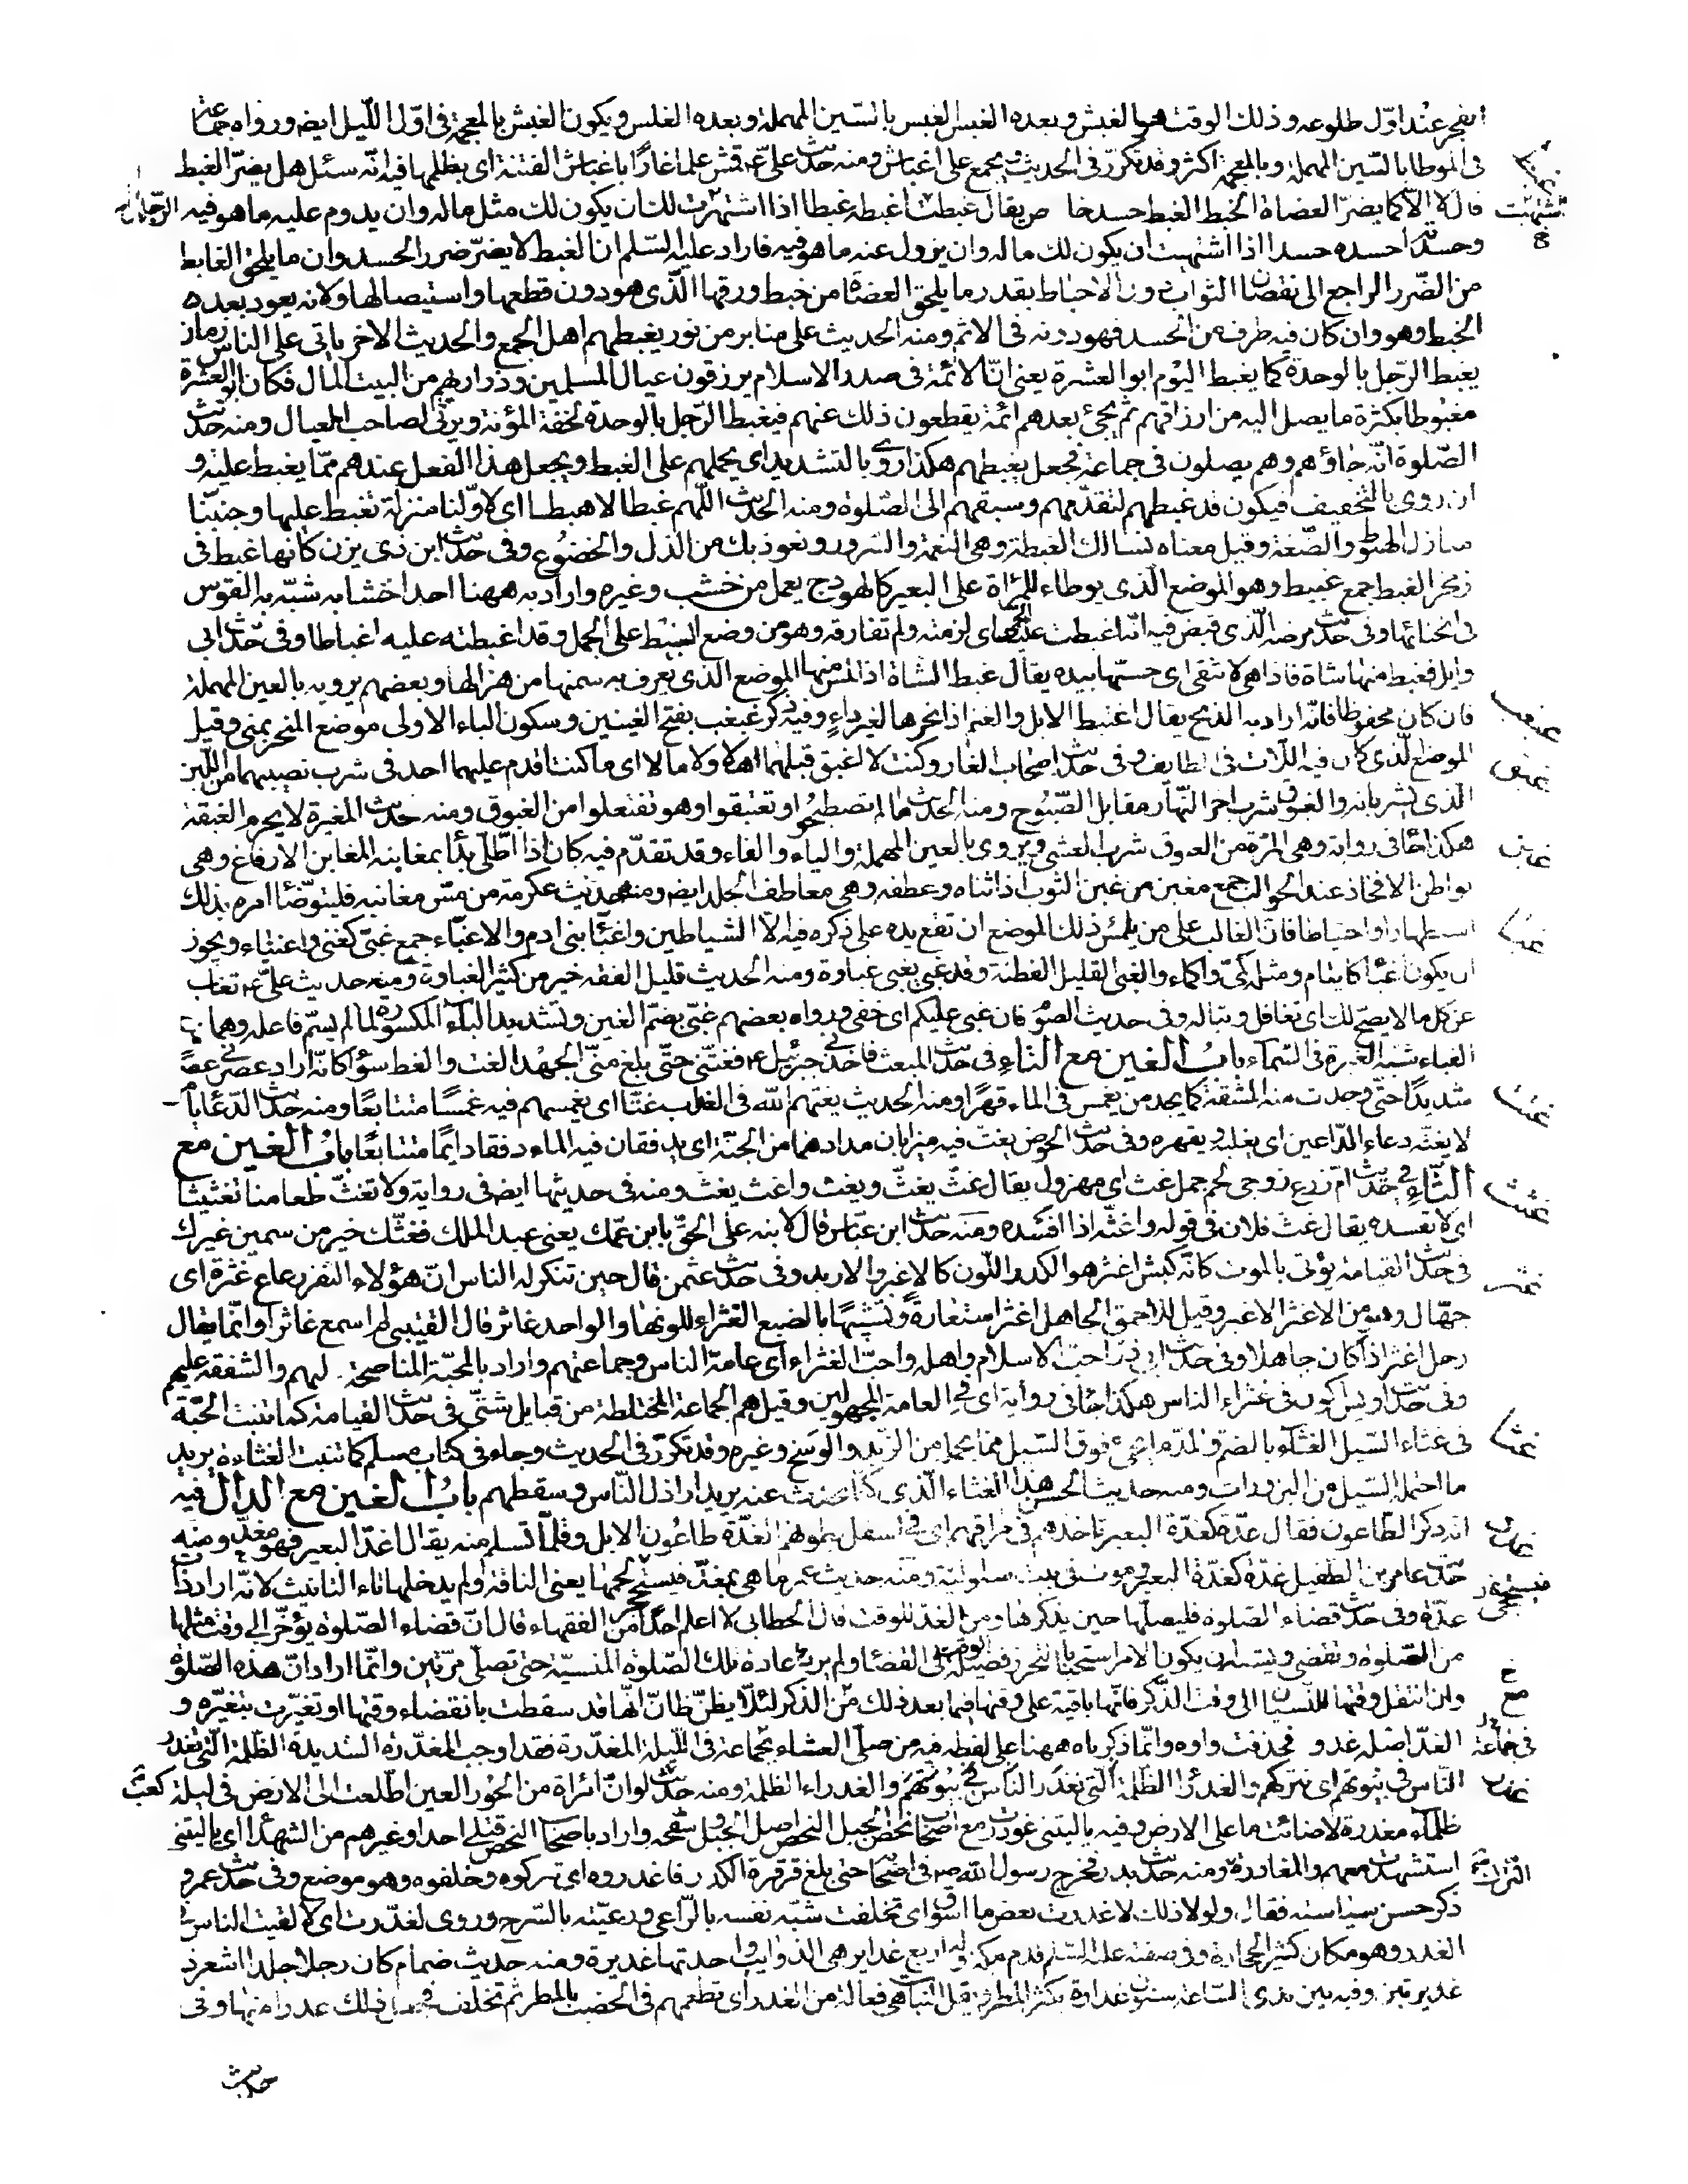 الفجر عند اول طلوعه وذلك الوقت هو الغبش وبعده الغبس الغبس بالسّين المهملة وبعده الغلس ويكون الغبش بالمعجمة فى اوّل اللّيل ايضه ورواه جماعة
فى الموطا بالسّين المهملة وبالمعجمة اكثر وقد تكرّر فى الحديث ويجمع على اغباش ومنه حديث علىّ ع قمش علما غارًا باغباش الفتنة اى بظلمها فيه انّه سئل هل يضرّ الغبط
قال لا الّا كما يضرّ العضاة الخبط الغبط حسد خاص يقال غبطت اغبطه غبطا اذا اشتهيت لك ان يكون لك مثل ماله وان يدوم عليه ما هو فيه
وحسدته احسده حسدا اذا اشتهيت ان يكون لك ماله وان يزول عنه ما هو فيه فاراد عليه السّلم ان الغبط لا يضرّ ضرر الحسد وان ما يلحق الغابط
من الضّرر الراجع الى نقصان الثواب دون الاحباط بقدر ما يلحق العضاه من خبط ورقها الّذى هو دون قطعها واستيصالها ولانه يعود بعده
الخبط وهو وان كان فيه طرف من الحسد فهو دونه فى الاثم ومنه الحديث على منابر من نور يغبطهم اهل الجمع والحديث الاخر ياتى على الناس زمان
يغبط الرّجل بالوحدة كما يغبط اليوم ابو العشرة يعنى انّ الائمّة فى صدر الاسلام يرزقون عيال المسلمين وذراريهم من البيت المال فكان ابو العشرة
مغبوطا بكثرة ما يصل اليه من ارزاقهم ثم يجئ بعدهم ائمّة يقطعون ذلك عنهم فيغبط الرّجل بالوحدة لخفة المؤنة ويرثى لصاحب العيال ومنه حديث
الصّلوة انّه جاؤهم وهم يصلون فى جماعة فجعل يغبطهم هكذا روى بالتشديد اى يحملهم على الغبط ويجعل هذا الفعل عندهم ممّا يغبط عليه و
ان روى بالتخفيف فيكون قد غبطهم لتقدّمهم وسبقهم الى الصّلوة ومنه الحديث اللّهم غبطا لا هبطا اى اولنا منزلة نغبط عليها وجنّبنا
منازل الهبوط والضّعة وقيل معناه نسالك الغبطة وهى النعمة والسّرور ونعوذ بك من الذل والخضوع وفى حديث ابن ذى يزن كانها غبط فى
زمخر الغبط جمع غبيط وهو الموضع الّذى يوطاء للمراة على البعير كالهودج يعمل من خشب وغيره واراد به ههنا احد اخشابه شبّه به القوس
فى انحنائها وفى حديث مرضه الّذى قبض فيه انّها غبطت عليه الحمى اى لزمته ولم تفارقه وهو من وضع الغبيط على الجمل وقد اغبطته عليه اغباطا وفى حديث ابى
وايل فغبط منها شاة فاذا هى لا تنقى اى حسّها بيده يقال غبط الشاة اذا لمس منها الموضع الذى يعرف به سمنها من هزالها وبعضهم يرويه بالعين المهملة
فان كان محفوظا فانّه اراد به الذبح يقال اعتبط الابل والغنم اذا نحرها لغير داءٍ وفيه ذكر غبغب بفتح الغينين وسكون الباء الاولى موضع المنحر بمنى وقيل
الموضع الّذى كان فيه اللّات فى الطايف وفى حديث اصحاب الغار وكنت لا اغبق قبلهما اهلا ولا مالا اى ما كنت اقدم عليهما احد فى شرب نصيبهما من اللّبن
الّذى يشربانه والغبوق شرب اخر النّهار مقابل الصّبوح ومنه الحديث ما لم تصطبحوا او تغتبقوا وهو تفتعلوا من الغبوق ومنه حديث المغيرة لا يحرم الغبقة
هكذا جاء فى رواية وهى المرّة من الغبوق شرب العشى ويروى بالعين المهملة والياء والفاء وقد تقدّم فيه كان اذا اطّلى بدأ بمغابنه المغابن الارفاغ وهى
بواطن الافخاذ عند الحوالب جمع مغبن من غبن الثوب اذا ثناه وعطفه وهى معاطف الجلد ايضه ومنه حديث عكرمة من مسّ مغابنه فليتوضّا امره بذلك
استظهارا واحتياطا فان الغالب على من يلمس ذلك الموضع ان تقع يده على ذكره فيه الّا الشياطين واغبياء بنى ادم والاغبياء جمع غبىّ كغنى واغنياء ويجوز
ان يكون اغباء كايتام ومثله كمىّ واكماء والغبى القليل الفطنة وقد غبى يغبى غباوة ومنه الحديث قليل الفقه خير من كثير الغباوة ومنه حديث علىّ ع تغاب
عن كل ما لا يصحّ لك اى تغافل وتباله وفى حديث الصّوم فان غبى عليكم اى خفى ورواه بعضهم غبّى بضمّ الغين وتشديد الباء المكسورة لما لم يسمّ فاعله وهما من
الغباء شبه الغبرة فى السّماء باب الغين مع التاء فى حديث المبعث فاخذنى جبرئيل ع فغتّنى حتّى بلغ منّى الجهد الغت والغط سؤا كانّه اراد عصرنى عصرًا
شديدًا حتّى وجدت منه المشقة كما يجد من يغمس فى الماء قهرًا ومنه الحديث يغتهم الله فى العذاب غتّا اى يغمسهم فيه غمسًا متتابعًا ومنه حديث الدّعا يا من
لا يغتّه دعاء الدّاعين اى يغلبه ويقهره وفى حديث الحوض يغتّ فيه ميزابان مدادهما من الجنّة اى يدفقان فيه الماء دفقا دايمًا متتابعًا باب الغين مع
الثّاء فى حديث امّ زرع زوجى لحم جمل غث اى مهزول يقال غثّ يغثّ ويغث واغث يغث ومنه فى حديثها ايضه فى رواية ولا تغثّ طعامنا تغثيثا
اى لا تفسده يقال غث فلان فى قوله واغثّه اذا افسده ومنه حديث ابن عبّاس قال لابنه علىّ الحق بابن عمّك يعنى عبد الملك فغثّك خير من سمين غيرك
فى حديث القيامة يؤتى بالموت كانّه كبش اغثر هو الكدر اللّون كالاغبر والاربد وفى حديث عثمن قال حين تنكر له الناس انّ هؤلاء النفر رعاع غثرة اى
جهّال وهو من الاغثر الاغبر وقيل للاحمق الجاهل اغثر استعارة وتشبيهًا بالضبع الغثراء للونها والواحد غاثر قال القتيبى لم اسمع غاثرا وانّما يقال
رجل اغثر اذا كان جاهلا وفى حديث ابى ذر احبّ الاسلام واهله واحبّ الغثراء اى عامة الناس وجماعتهم واراد بالمحبّة المناصحة لهم والشفقة عليهم
وفى حديث اويس اكون فى غثراء الناس هكذا جاء فى رواية اى فى العامة المجهولين وقيل هم الجماعة المختلطة من قبايل شتّى فى حديث القيامة كما تنبت الحبّة
فى غثاء السّيل الغثاء بالضمّ والمدّ ما يجئ فوق السّيل مما يحمله من الزّبد والوسخ وغيره وقد تكرّر فى الحديث وجاء فى كتاب مسلم كما تنبت الغثاءة يريد
ما احتمله السّيل من البزورات ومنه حديث الحسن هذا الغثاء الّذى كنّا نحدث عنه يريد اراذل النّاس وسقطهم باب الغين مع الدال فيه
انه ذكر الطّاعون فقال غدّة كغدّة البعير تاخذهم فى مراقهم اى فى اسفل بطونهم الغدّة طاعون الابل وقلّما تسلم منه يقال اغدّ البعير فهو مغدّ ومنه
حديث عامر بن الطفيل غدّة كغدّة البعير وموت فى بيت سلولية ومنه حديث عمر ما هى بمغدّ فيستحجى لحمها يعنى الناقة ولم يدخلها تاء التانيث لانّه اراد ذات
غدّة وفى حديث قضاء الصّلوة فليصلّها حين يذكرها ومن الغد للوقت قال الخطابى لا اعلم احدًا من الفقهاء قال انّ قضاء الصّلوة يؤخّر الى وقت مثلها
من الصّلوة وتقضى ويشبه ان يكون الامر استحبابًا لتحرز فضيلة الوقت فى القضا ولم يرد اعادة تلك الصّلوة المنسيّة حتى تصلّى مرّتين وانّما اراد انّ هذه الصّلوة
وان انتقل وقتها للنسيان الى وقت الذّكر فانّها باقية على وقتها فيما بعد ذلك من الذكر لئلّا يظنّ ظانّ انّها قد سقطت بانقضاء وقتها او تغيّرت بتغيّره و
الغد اصله غدو فحذفت واوه وانّما ذكرناه ههنا على لفظه فيه من صلّى العشاء بجماعة فى اللّيلة المغدرة فقد اوجب المغدرة الشديدة الظلمة الّتى تغدر
النّاس فى بيوتهم اى تتركهم والغدراء الظّلمة الّتى تغدر النّاس فى بيوتهم والغدراء الظلمة ومنه حديث كعب لو انّ امراة من الحور العين اطّلعت الى الارض فى ليلة
ظلماء مغدرة لاضائت ما على الارض وفيه يا ليتنى غودرت مع اصحاب نحص الجبل النحص اصل الجبل وسفحه واراد باصحاب النحص قتلى احد او غيرهم من الشهداء اى يا ليتنى
استشهدت معهم والمغادرة ومنه حديث بدر فخرج رسول الله ص فى اصحابه حتى بلغ قرقرة الكدر فاغدروه اى تركوه وخلفوه وهو موضع وفى حديث عمر و
ذكر حسن سياسته فقال ولولا ذلك لاغدرت بعض ما اسوق اى تخلفت شبّه نفسه بالرّاعى ورعيّته بالسّرح وروى لغدّرت اى لالقيت الناس فى
الغدر وهو مكان كثير الحجارة وفى صفته عليه السّلم قدم مكة وله اربع غداير هى الذوايب واحدتها غديرة ومنه حديث ضمام كان رجلا جلدا اشعر ذ
غديرتين وفيه بين يدى السّاعة سنون غدارة يكثر المطر ويقلّ النبات هى فعالة من الغدر اى تطمعهم فى الخصب بالمطر ثم تخلف فجعل ذلك غدرا منها وفى
حديث
غبط
اشتهيت
غبغب
غبق
غبن
غبا
غتت
غثث
غثر
غثا
غدد
غدر